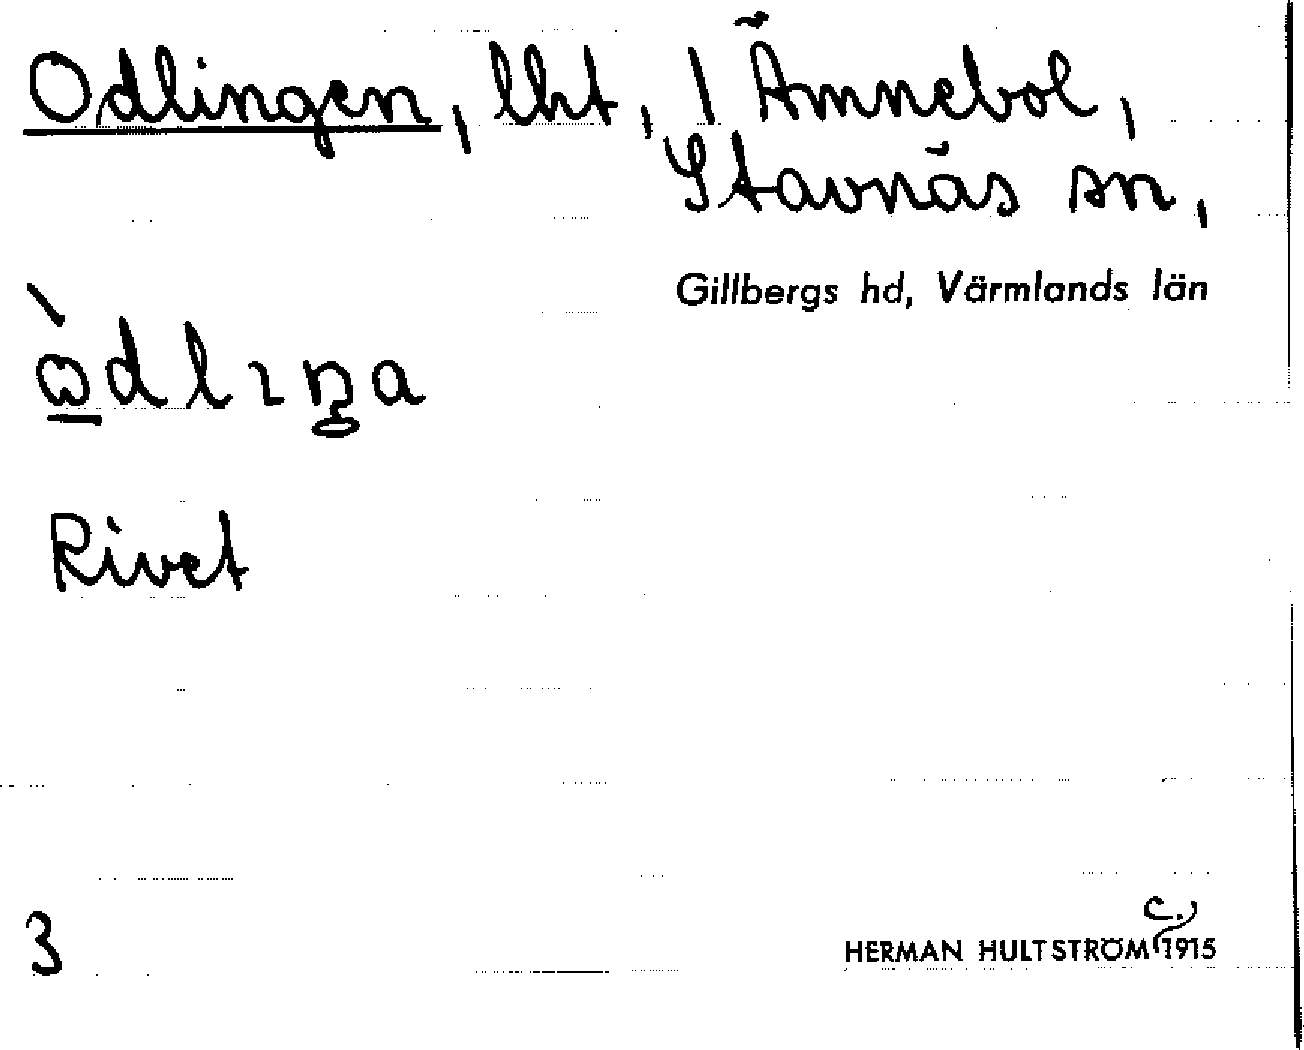 Odlingen, lht, 1 Ämnebol,
Stavnäs sn,
Gillbergs hd, Värmlands län
Rivet
3
HERMAN HULTSTRÖM c. 1915